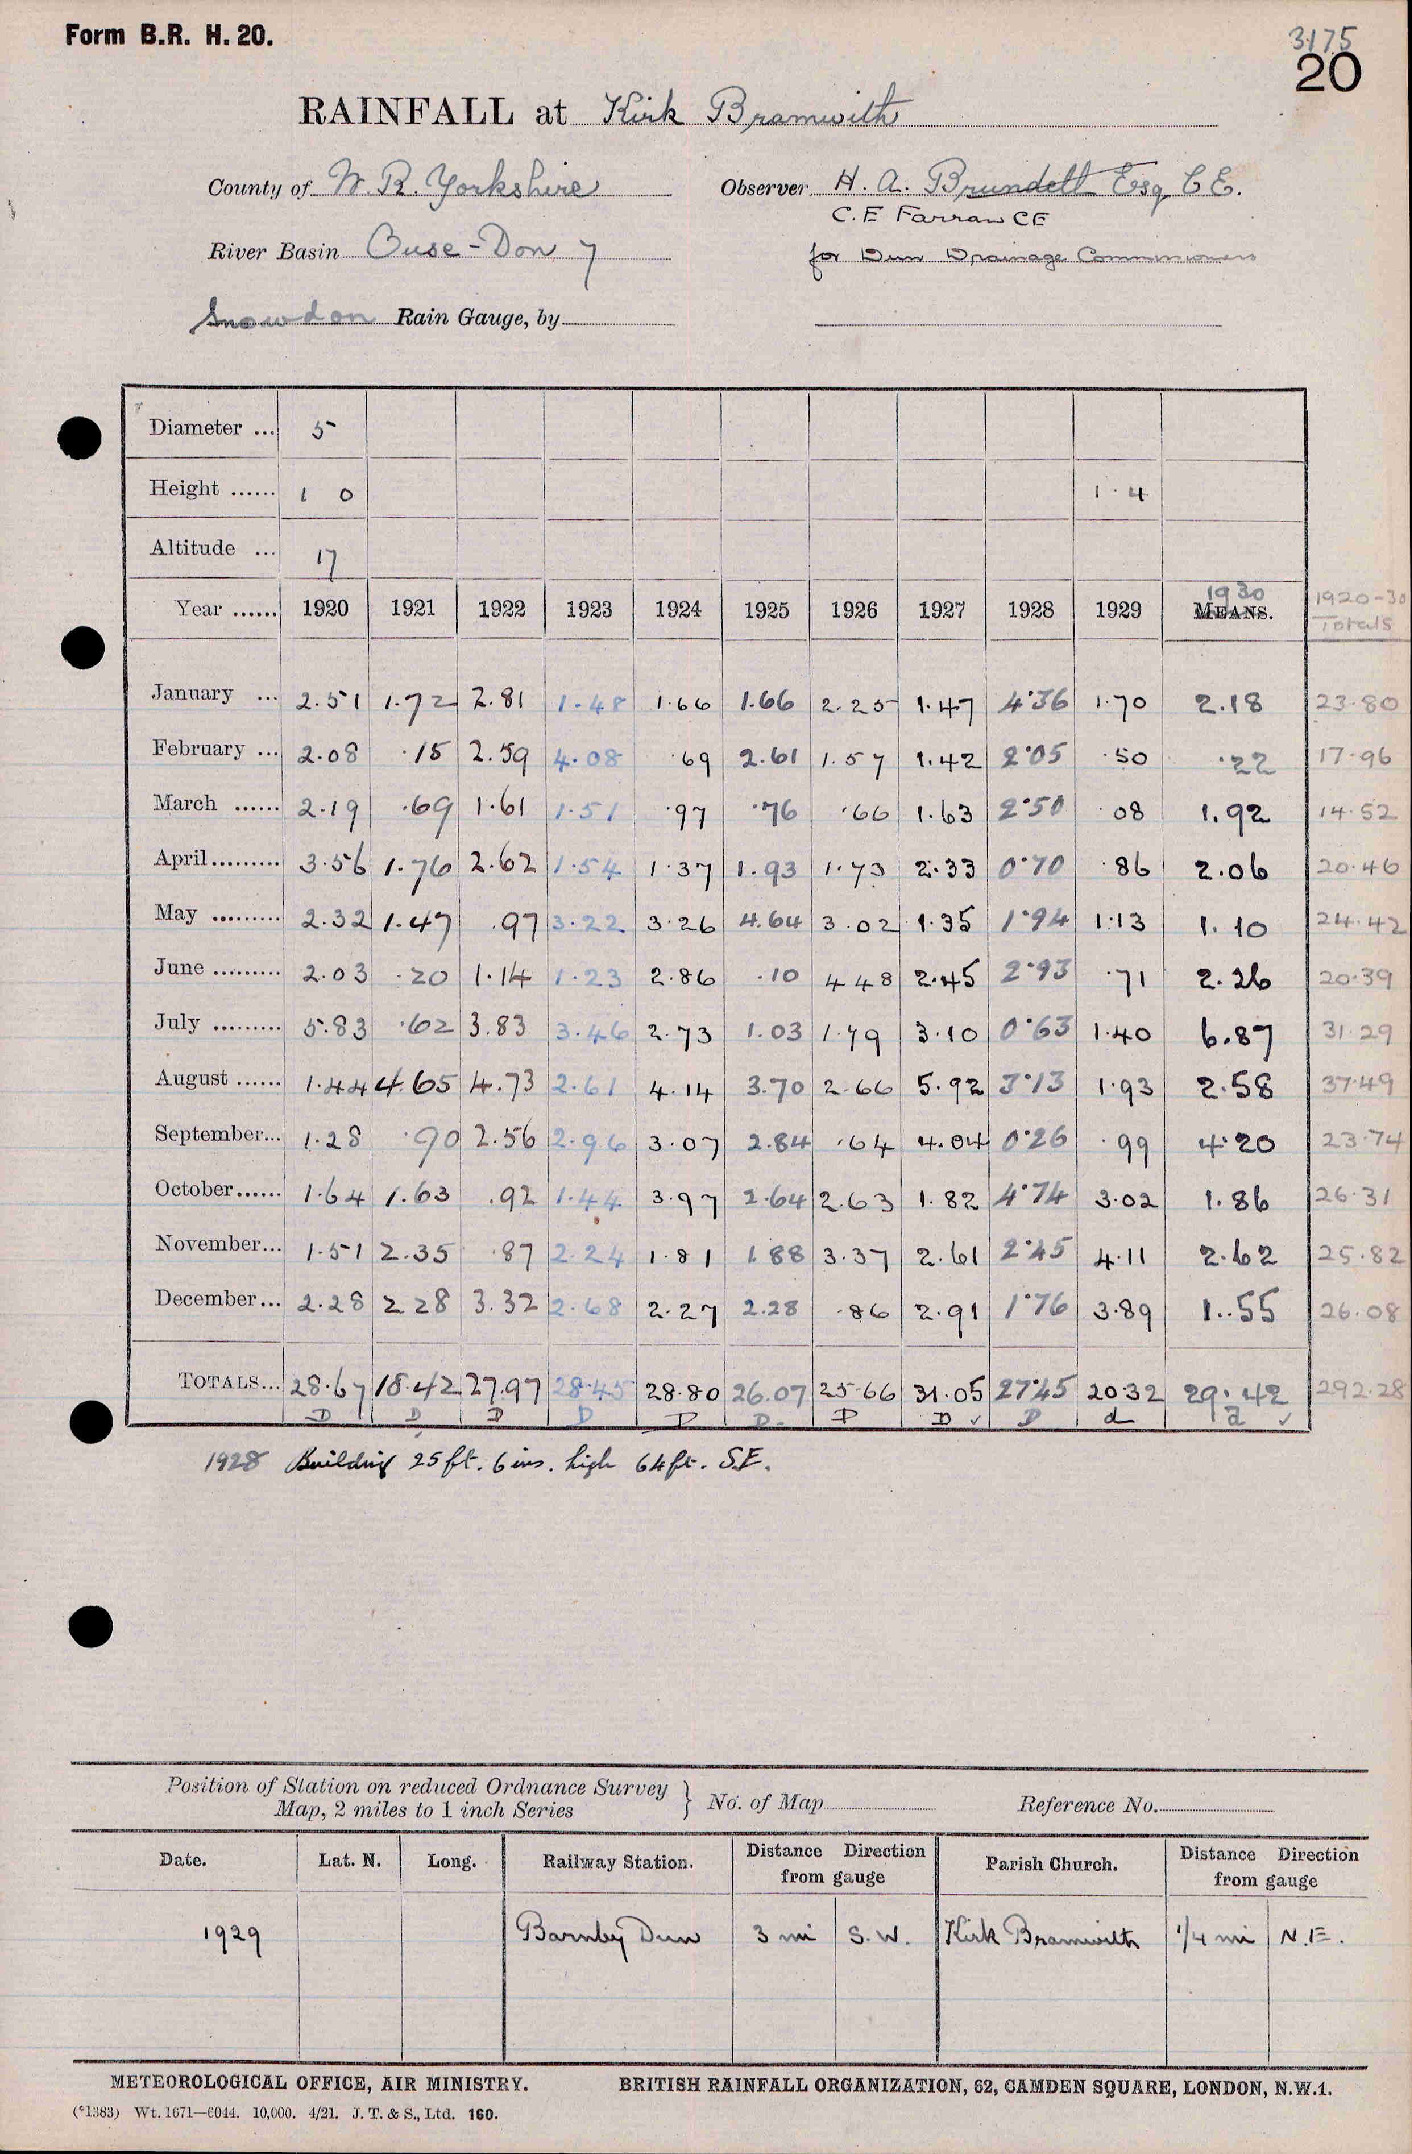 Form B.R. H. 20.
3175
20
RAINFALL at Kirk Bramwith
County of W. R. Yorkshire Observer H. A. Brundell Esq C E.
C. E Farran CE
River Basin Ouse - Don 7 for Dun Drainage Commissioners
Snowdon Rain Gauge, by
Diameter ... 5
Height ...... 1 0 1 · 4
Altitude ... 17
Year ...... 1920 1921 1922 1923 1924 1925 1926 1927 1928 1929 1930 MEANS. 1920-30 Totals
January ... 2.51 1.72 2.81 1.48 1.66 1.66 2.25 1.47 4.36 1.70 2.18 23.80
February ... 2.08 .15 2.59 4.08 .69 2.61 1.57 1.42 2.05 .50 .22 17.96
March ...... 2.19 .69 1.61 1.51 .97 .76 .66 1.63 2.50 08 1.92 14.52
April......... 3.56 1.76 2.62 1.54 1.37 1.93 1.73 2.33 0.70 .86 2.06 20.46
May ......... 2.32 1.47 .97 3.22 3.26 4.64 3.02 1.35 1.94 1.13 1.10 24.42
June ......... 2.03 .20 1.14 1.23 2.86 .10 4 48 2.45 2.93 .71 2.26 20.39
July ......... 5.83 .62 3.83 3.46 2.73 1.03 1.79 3.10 0.63 1.40 6.87 31.29
August ...... 1.44 4.65 4.73 2.61 4.14 3.70 2.66 5.92 3.13 1.93 2.58 37.49
September... 1.28 .90 2.56 2.96 3.07 2.84 .64 4.04 0.26 .99 4.20 23.74
October...... 1.64 1.63 .92 1.44 3.97 2.64 2.63 1.82 4.74 3.02 1.86 26.31
November... 1.51 2.35 .87 2.24 1.81 1.88 3.37 2.61 2.45 4.11 2.62 25.82
December... 2.28 2 28 3.32 2.68 2.27 2.28 .86 2.91 1.76 3.89 1..55 26.08
TOTALS... 28.67 18.42 27.97 28.45 28.80 26.07 25.66 31.05 27.45 20.32 29.42 292.28
D D D D D D D D ✓ D d d ✓
1928 Building 25 ft. 6 ins. high 64 ft. S.E.
Position of Station on reduced Ordnance Survey
Map, 2 miles to 1 inch Series } No. of Map Reference No.
Date. Lat. N. Long. Railway Station. Distance Direction from gauge Parish Church. Distance Direction from gauge
1929 Barnby Dun 3 mi S. W. Kirk Bramwith 1/4 mi N. E.
METEOROLOGICAL OFFICE, AIR MINISTRY. BRITISH RAINFALL ORGANIZATION, 62, CAMDEN SQUARE, LONDON, N.W.1.
(*1383) Wt. 1671—6044. 10,000. 4/21. J. T. & S., Ltd. 160.